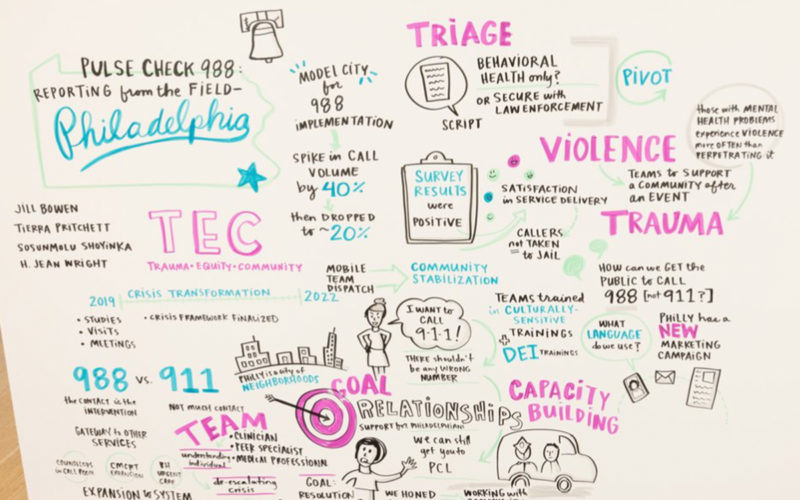 PULSE CHECK 988:
REPORTING from the FIELD-
Philadelphia
JILL BOWEN
TIERRA PRITCHETT
SOSUNMOLU SHOYINKA
H. JEAN WRIGHT
TEC
TRAUMA • EQUITY • COMMUNITY
MODEL CITY
for
988
IMPLEMENTATION
SPIKE in CALL
VOLUME
by 40%
then DROPPED
to ~20%
TRIAGE
SCRIPT
BEHAVIORAL
HEALTH only?
OR SECURE with
LAW ENFORCEMENT
PIVOT
VIOLENCE
those with MENTAL
HEALTH PROBLEMS
experience VIOLENCE
more OFTEN than
PERPETRATING it
TEAMS to SUPPORT
a COMMUNITY after
an EVENT
TRAUMA
SURVEY
RESULTS
were
POSITIVE
SATISFACTION
in SERVICE DELIVERY
CALLERS
not TAKEN
to JAIL
MOBILE
TEAM
DISPATCH
COMMUNITY
STABILIZATION
HOW can we GET the
PUBLIC to CALL
988 [not 911?]
2019
CRISIS TRANSFORMATION
2022
• STUDIES
• VISITS
• MEETINGS
• CRISIS FRAMEWORK FINALIZED
I WANT to
CALL
9-1-1!
THERE SHOULDN'T
be any WRONG
NUMBER
TEAMS trained
in CULTURALLY-
SENSITIVE
TRAININGS
+
DEI TRAININGS
WHAT
LANGUAGE
do we USE?
PHILLY has a
NEW
MARKETING
CAMPAIGN
PHILLY is a city of
NEIGHBORHOODS
988 vs. 911
the CONTACT is the
INTERVENTION
NOT MUCH CONTACT
GATEWAY to OTHER
SERVICES
COUNSELORS
in CALL ROOM
CMCRT
EXPANSION
BH
URGENT
CARE
EXPANSION to SYSTEM
TEAM
• CLINICIAN
• PEER SPECIALIST
• MEDICAL PROFESSIONAL
understanding
individual
de-escalating
crisis
GOAL
RELATIONSHIPS
SUPPORT for PHILADELPHIANS
GOAL:
RESOLUTION
we can still
get you to
PCL
WE HONED
CAPACITY
BUILDING
WORKING with